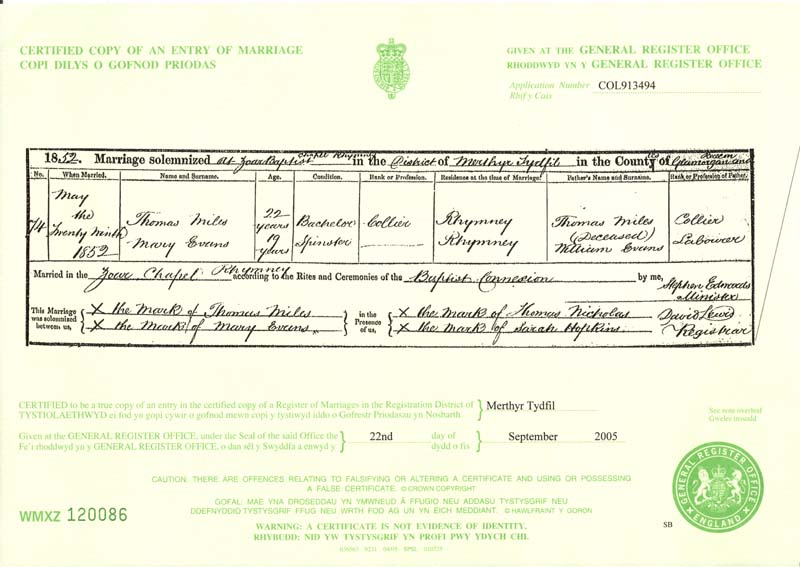 CERTIFIED COPY OF AN ENTRY OF MARRIAGE
COPI DILYS O GOFNOD PRIODAS
GIVEN AT THE GENERAL REGISTER OFFICE
RHODDWYD YN Y GENERAL REGISTER OFFICE
Application Number COL913494
Rhif y Cais
1852. Marriage solemnized at Zoar Baptist Chapel Rhymney in the District of Merthyr Tydfil in the Counties of Glamorgan and
No. When Married. Name and Surname. Age. Condition. Rank or Profession. Residence at the time of Marriage. Father's Name and Surname. Rank or Profession of Father.
74 May the Twenty Ninth 1852
Thomas Miles 22 years Bachelor Collier Rhymney Thomas Miles (Deceased) Collier
Mary Evans 19 years Spinster Rhymney William Evans Labourer
Married in the Zoar Chapel Rhymney according to the Rites and Ceremonies of the Baptist Connexion by me, Stephen Edwards Minister
This Marriage was solemnized between us, X the Mark of Thomas Miles
X the Mark of Mary Evans,
in the Presence of us, X the Mark of Thomas Nicholas
X the Mark of Sarah Hopkins.
David Lewis Registrar
CERTIFIED to be a true copy of an entry in the certified copy of a Register of Marriages in the Registration District of
TYSTIOLAETHWYD ei fod yn gopi cywir o gofnod mewn copi y tystiwyd iddo o Gofrestr Priodasau yn Nosbarth
Merthyr Tydfil
See note overleaf
Gweler trosodd
Given at the GENERAL REGISTER OFFICE, under the Seal of the said Office the
Fe'i rhoddwyd yn y GENERAL REGISTER OFFICE, o dan sêl y Swyddfa a enwyd y
22nd day of September 2005
dydd o fis
CAUTION: THERE ARE OFFENCES RELATING TO FALSIFYING OR ALTERING A CERTIFICATE AND USING OR POSSESSING
A FALSE CERTIFICATE. © CROWN COPYRIGHT
GOFAL: MAE YNA DROSEDDAU YN YMWNEUD Â FFUGIO NEU ADDASU TYSTYSGRIF NEU
DDEFNYDDIO TYSTYSGRIF FFUG NEU WRTH FOD AG UN YN EICH MEDDIANT. © HAWLFRAINT Y GORON
WARNING: A CERTIFICATE IS NOT EVIDENCE OF IDENTITY.
RHYBUDD: NID YW TYSTYSGRIF YN PROFI PWY YDYCH CHI.
WMXZ 120086
SB
GENERAL REGISTER OFFICE
ENGLAND